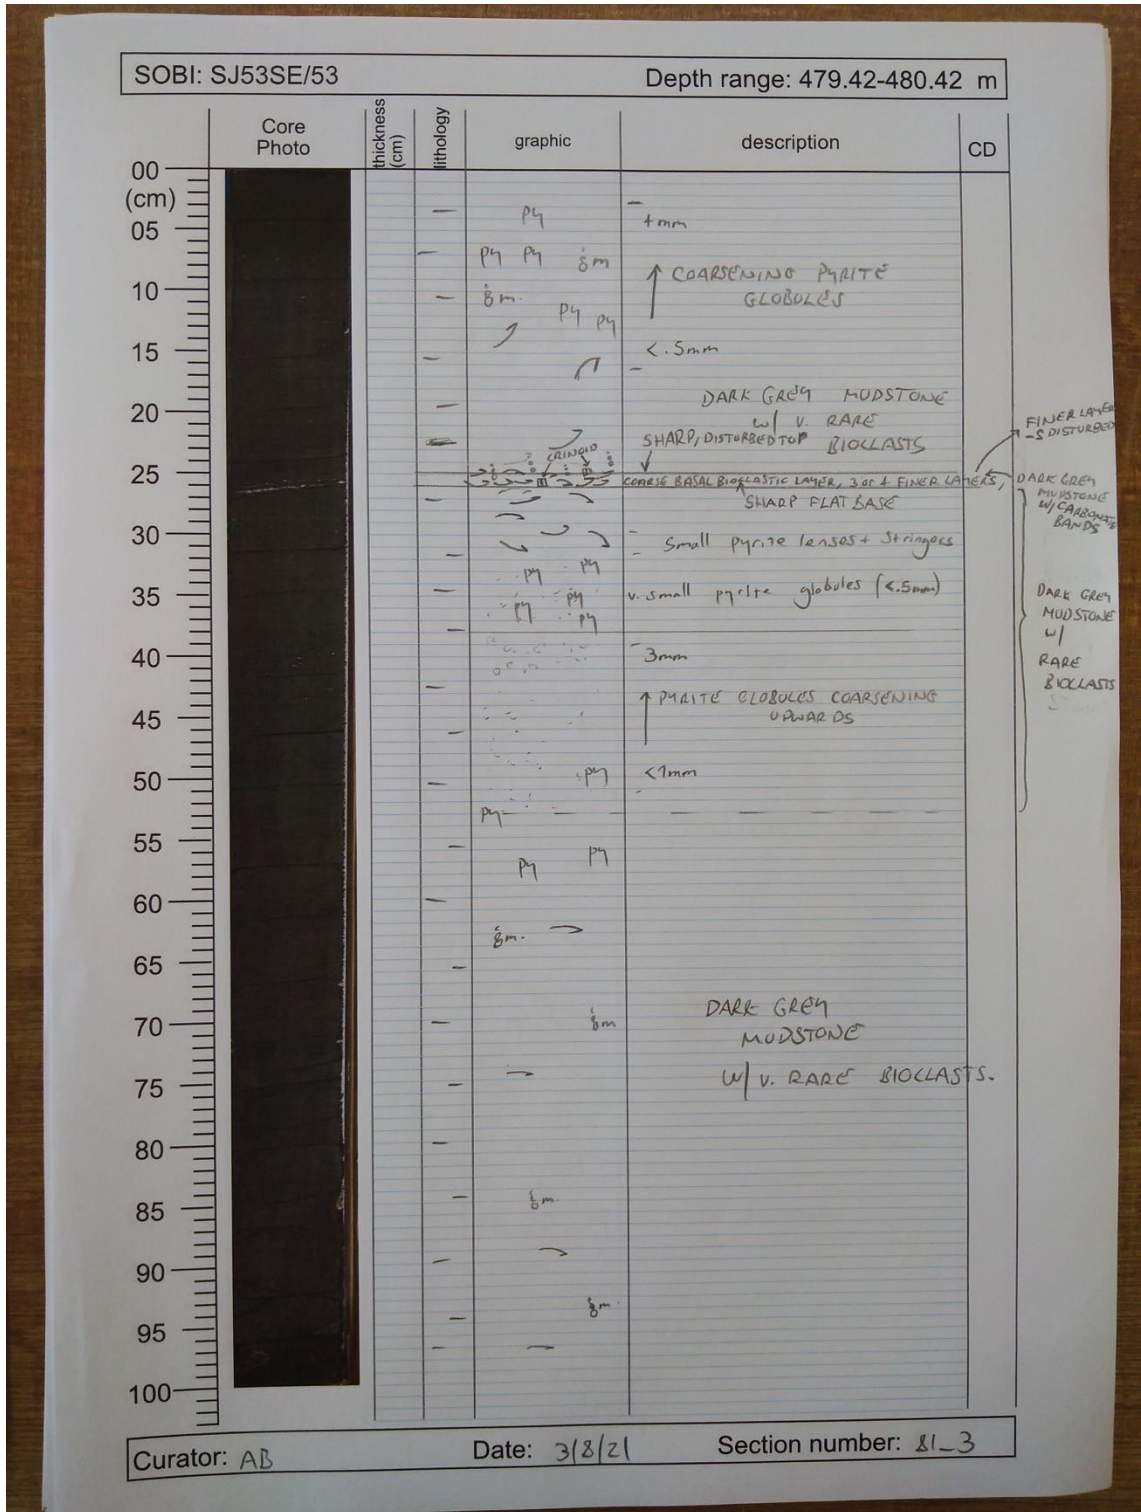 SOBI: SJ53SE/53
Depth range: 479.42-480.42 m
Core
Photo
thickness
(cm)
lithology
graphic
description
CD
00
(cm)
05
10
15
20
25
30
35
40
45
50
55
60
65
70
75
80
85
90
95
100
py
py py
py py
CRINOID
py py
py py
py
py
py
py py
4mm
COARSENING PYRITE
GLOBULES
<.5mm
DARK GREY MUDSTONE
w/ v. RARE
BIOCLASTS
SHARP, DISTURBED TOP
COARSE BASAL BIOCLASTIC LAYER, 3 or 4 FINER LAYERS,
SHARP FLAT BASE
Small pyrite lenses + Stringers
v. small pyrite globules (<.5mm)
3mm
PYRITE GLOBULES COARSENING
UPWARDS
<1mm
DARK GREY
MUDSTONE
W/ V. RARE BIOCLASTS.
FINER LAYER
-S DISTURBED
DARK GREY
MUDSTONE
W/ CARBONATE
BANDS
DARK GREY
MUDSTONE
w/
RARE
BIOCLASTS
Curator: AB
Date: 3/8/21
Section number: 81_3